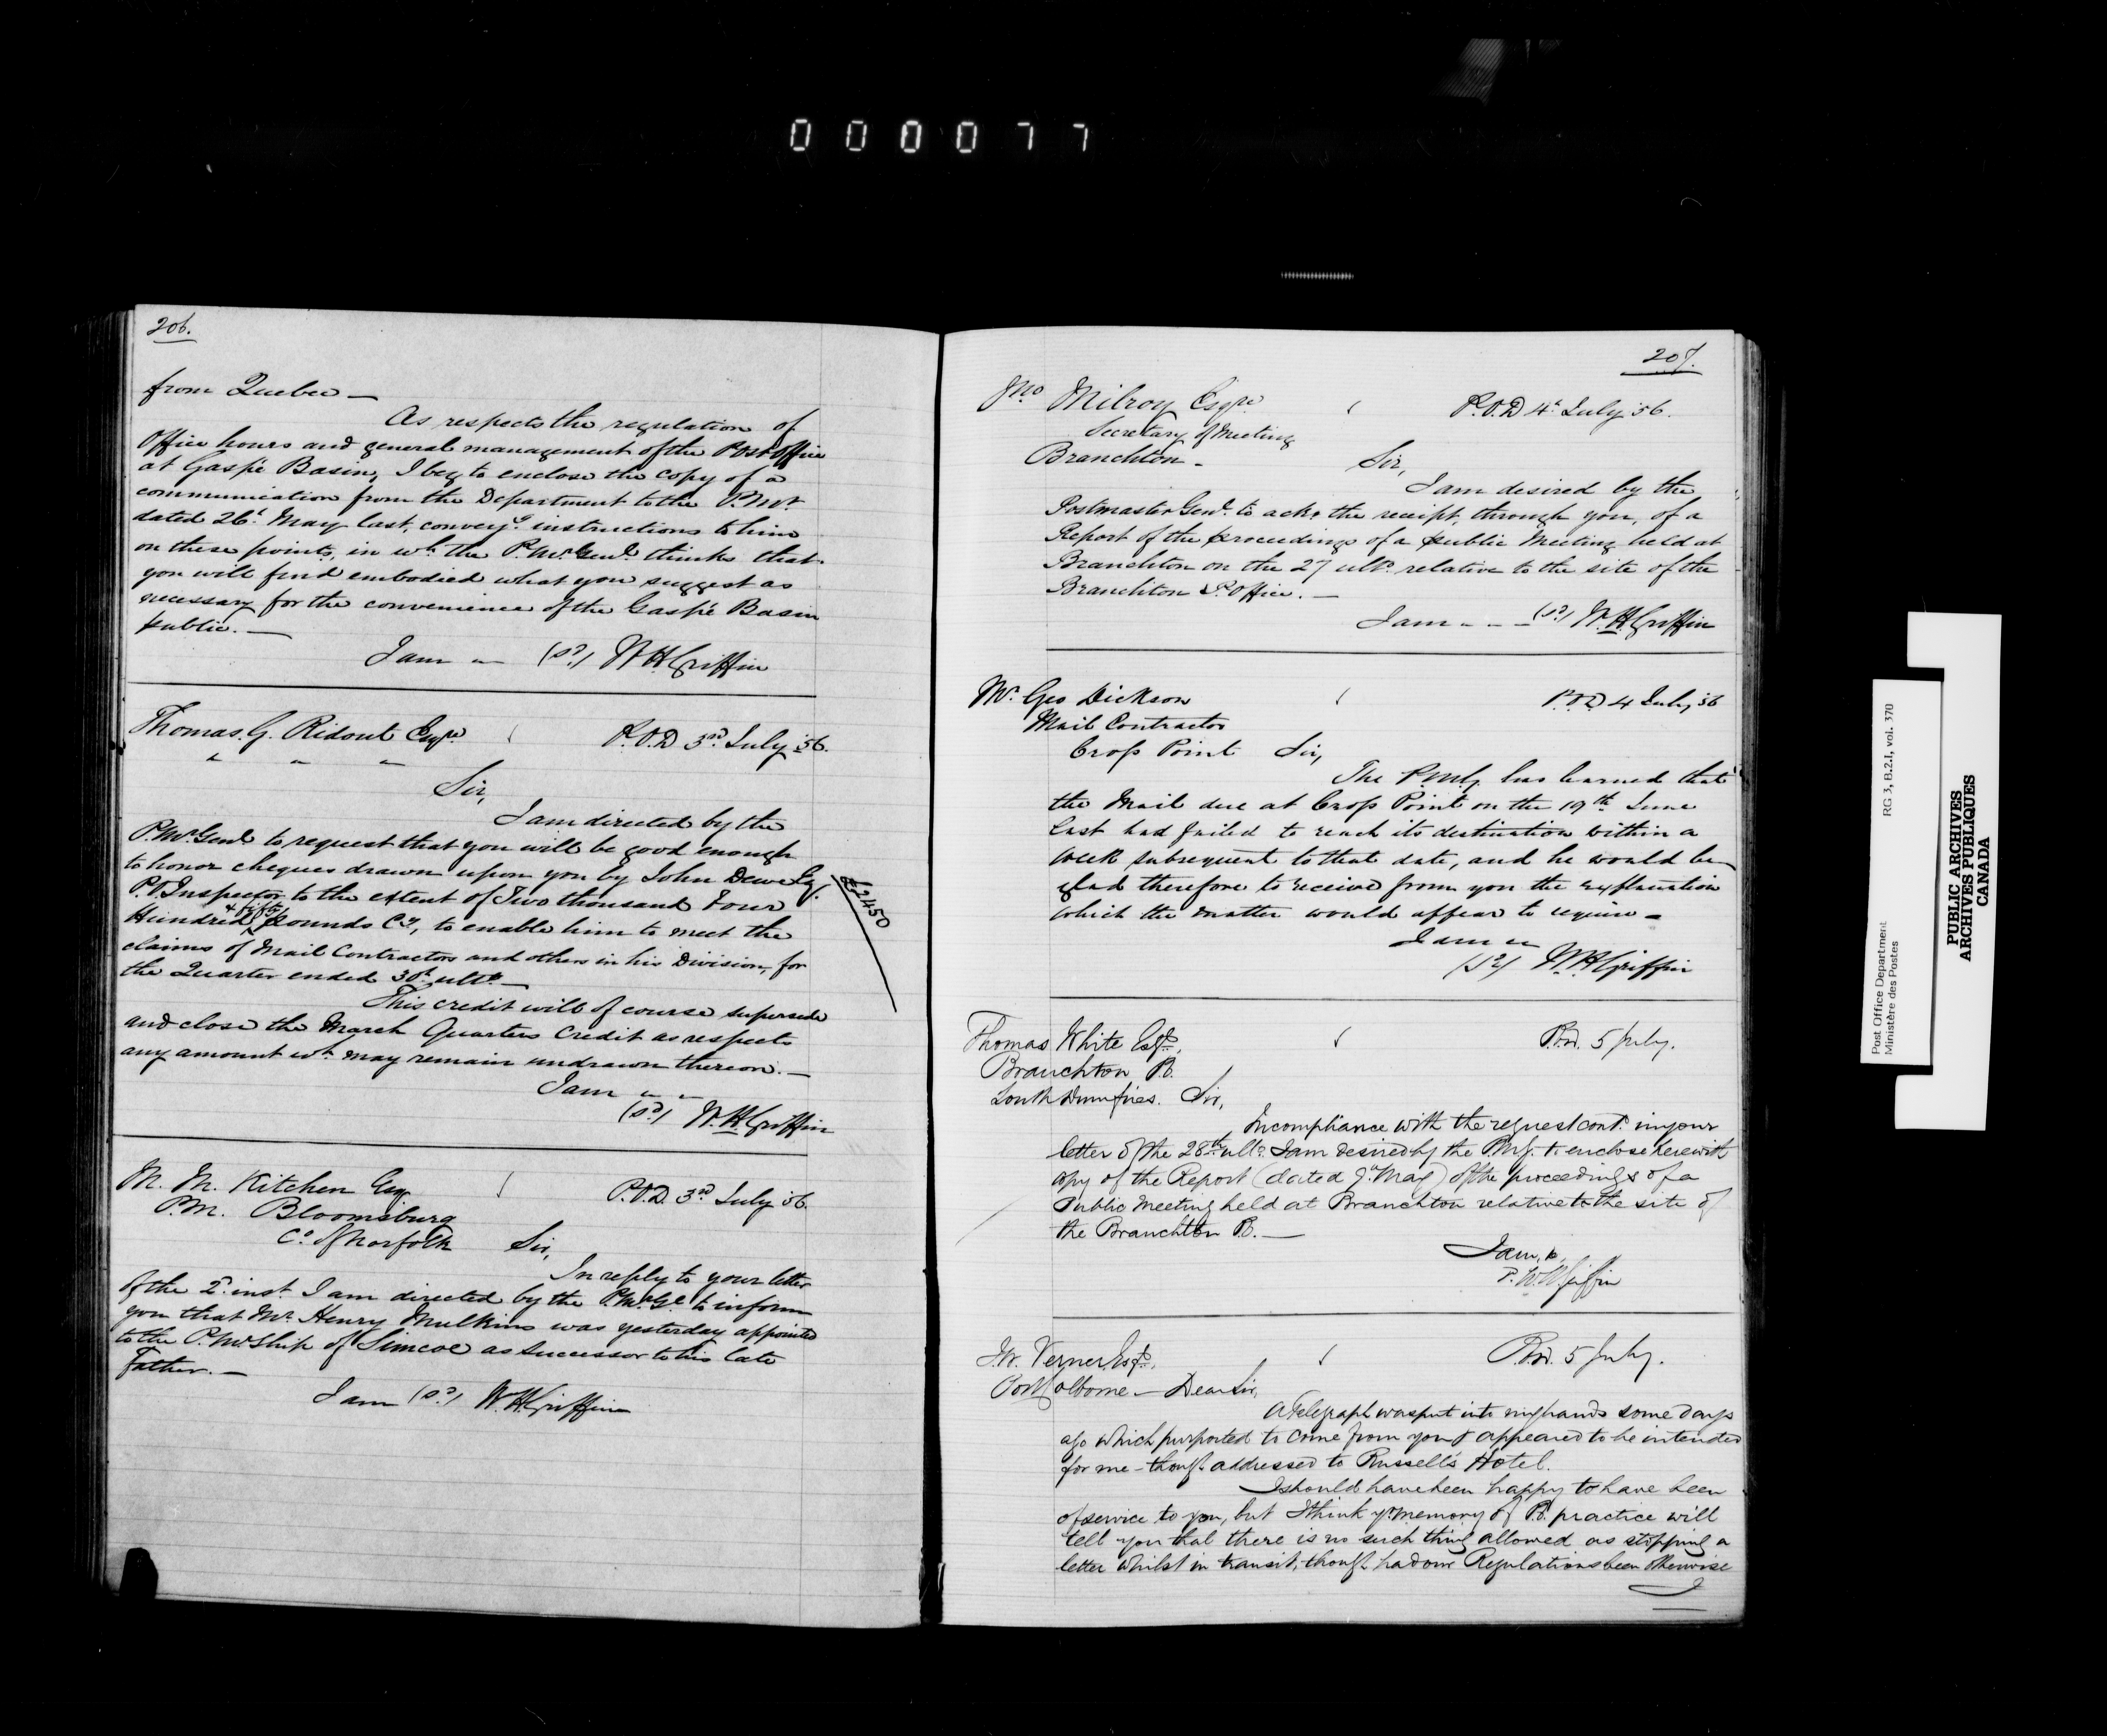 000077
206.
from Quebec —
As respects the regulation of
Office hours and general management of the Post Office
at Gaspé Basin, I beg to enclose the copy of a
communication from the Department to the P.Mr.
dated 26th May last, convey.g instructions to him
on these points, in wh. the P.Mr Genl. thinks that
you will find embodied what you suggest as
necessary for the convenience of the Gaspé Basin
public. —
I am " (sd) W.H. Griffin
Thomas G. Ridout Esqre P.O.D 3rd July '56.
" " "
Sir,
I am directed by the
P.Mr Genl to request that you will be good enough
to honor cheques drawn upon you by John Dewe Esq.
P.O. Inspector to the extent of Two thousand Four
Hundred & fifty pounds Cy, to enable him to meet the
£2450
claims of Mail Contractors and others in his Division, for
the Quarter ended 30th ulto. —
This credit will of course supersede
and close the March Quarters Credit as respects
any amount wh. may remain undrawn thereon. —
I am " "
(sd) W.H. Griffin
M. M. Kitchen Esq. P.O.D. 3rd July '56.
P.M. Bloomsburg
Co. of Norfolk Sir,
In reply to your letter
of the 2d. inst. I am directed by the P.Mr Gl. to inform
you that Mr. Henry Mulkins was yesterday appointed
to the P.Mr.Ship of Simcoe as successor to his late
father. —
I am (sd) W.H. Griffin
207.
Jno Milroy Esqre P.O.D 4th July '56.
Secretary of Meeting
Branchton - Sir,
I am desired by the
Postmaster Genl. to ack. the receipt, through you, of a
Report of the proceedings of a public Meeting held at
Branchton on the 27 ulto. relative to the site of the
Branchton P. Office. —
I am - - - (sd) W.H. Griffin
Mr. Geo Dickson P.O.D 4 July 56
Mail Contractor
Cross Point Sir,
The P.M.G. has learned that
the Mail due at Cross Point on the 19th June
last had failed to reach its destination within a
week subsequent to that date, and he would be
glad therefore to receive from you the explanation
which the matter would appear to require -
I am "
(sd) W.H. Griffin
Thomas White Esqre, P.O.D. 5 July.
Branchton P.O.
South Dumfries. Sir,
In compliance with the request cont.d in your
letter of the 28th ulto. I am desired by the P.M.G. to enclose herewith
copy of the Report (dated 9th May) of the proceedings of a
Public Meeting held at Branchton relative to the site of
the Branchton P.O. —
I am,
W.H. Griffin
J.W. Verner Esqre, P.O.D. 5 July.
Port Colborne — Dear Sir,
A Telegraph was put into my hands some days
ago which purported to come from you & appeared to be intended
for me - though addressed to Russell's Hotel.
I should have been happy to have been
of service to you, but I think yr. memory of P.O. practice will
tell you that there is no such thing allowed as stopping a
letter whilst in transit, though had our Regulations been otherwise
I
Post Office Department
Ministère des Postes
RG 3, B.2.1, vol. 370
PUBLIC ARCHIVES
ARCHIVES PUBLIQUES
CANADA